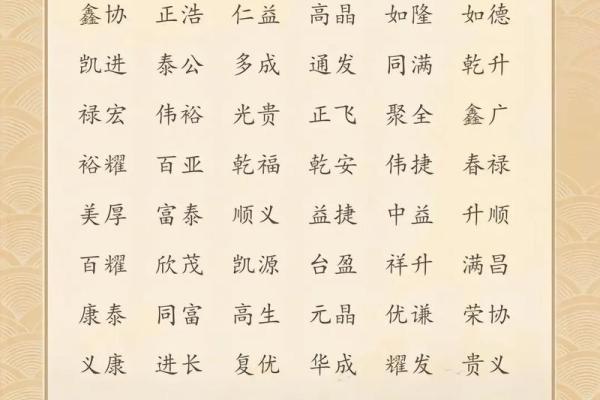 鑫协 正浩 仁益 高晶 如隆 如德
凯进 泰公 多成 通发 同满 乾升
禄宏 伟裕 光贵 正飞 聚全 鑫广
裕耀 百亚 乾福 乾安 伟捷 春禄
美厚 富泰 顺义 益捷 中益 升顺
百耀 欣茂 凯源 台盈 祥升 满昌
康泰 同富 高生 元晶 优谦 荣协
义康 进长 复优 华成 耀发 贵义